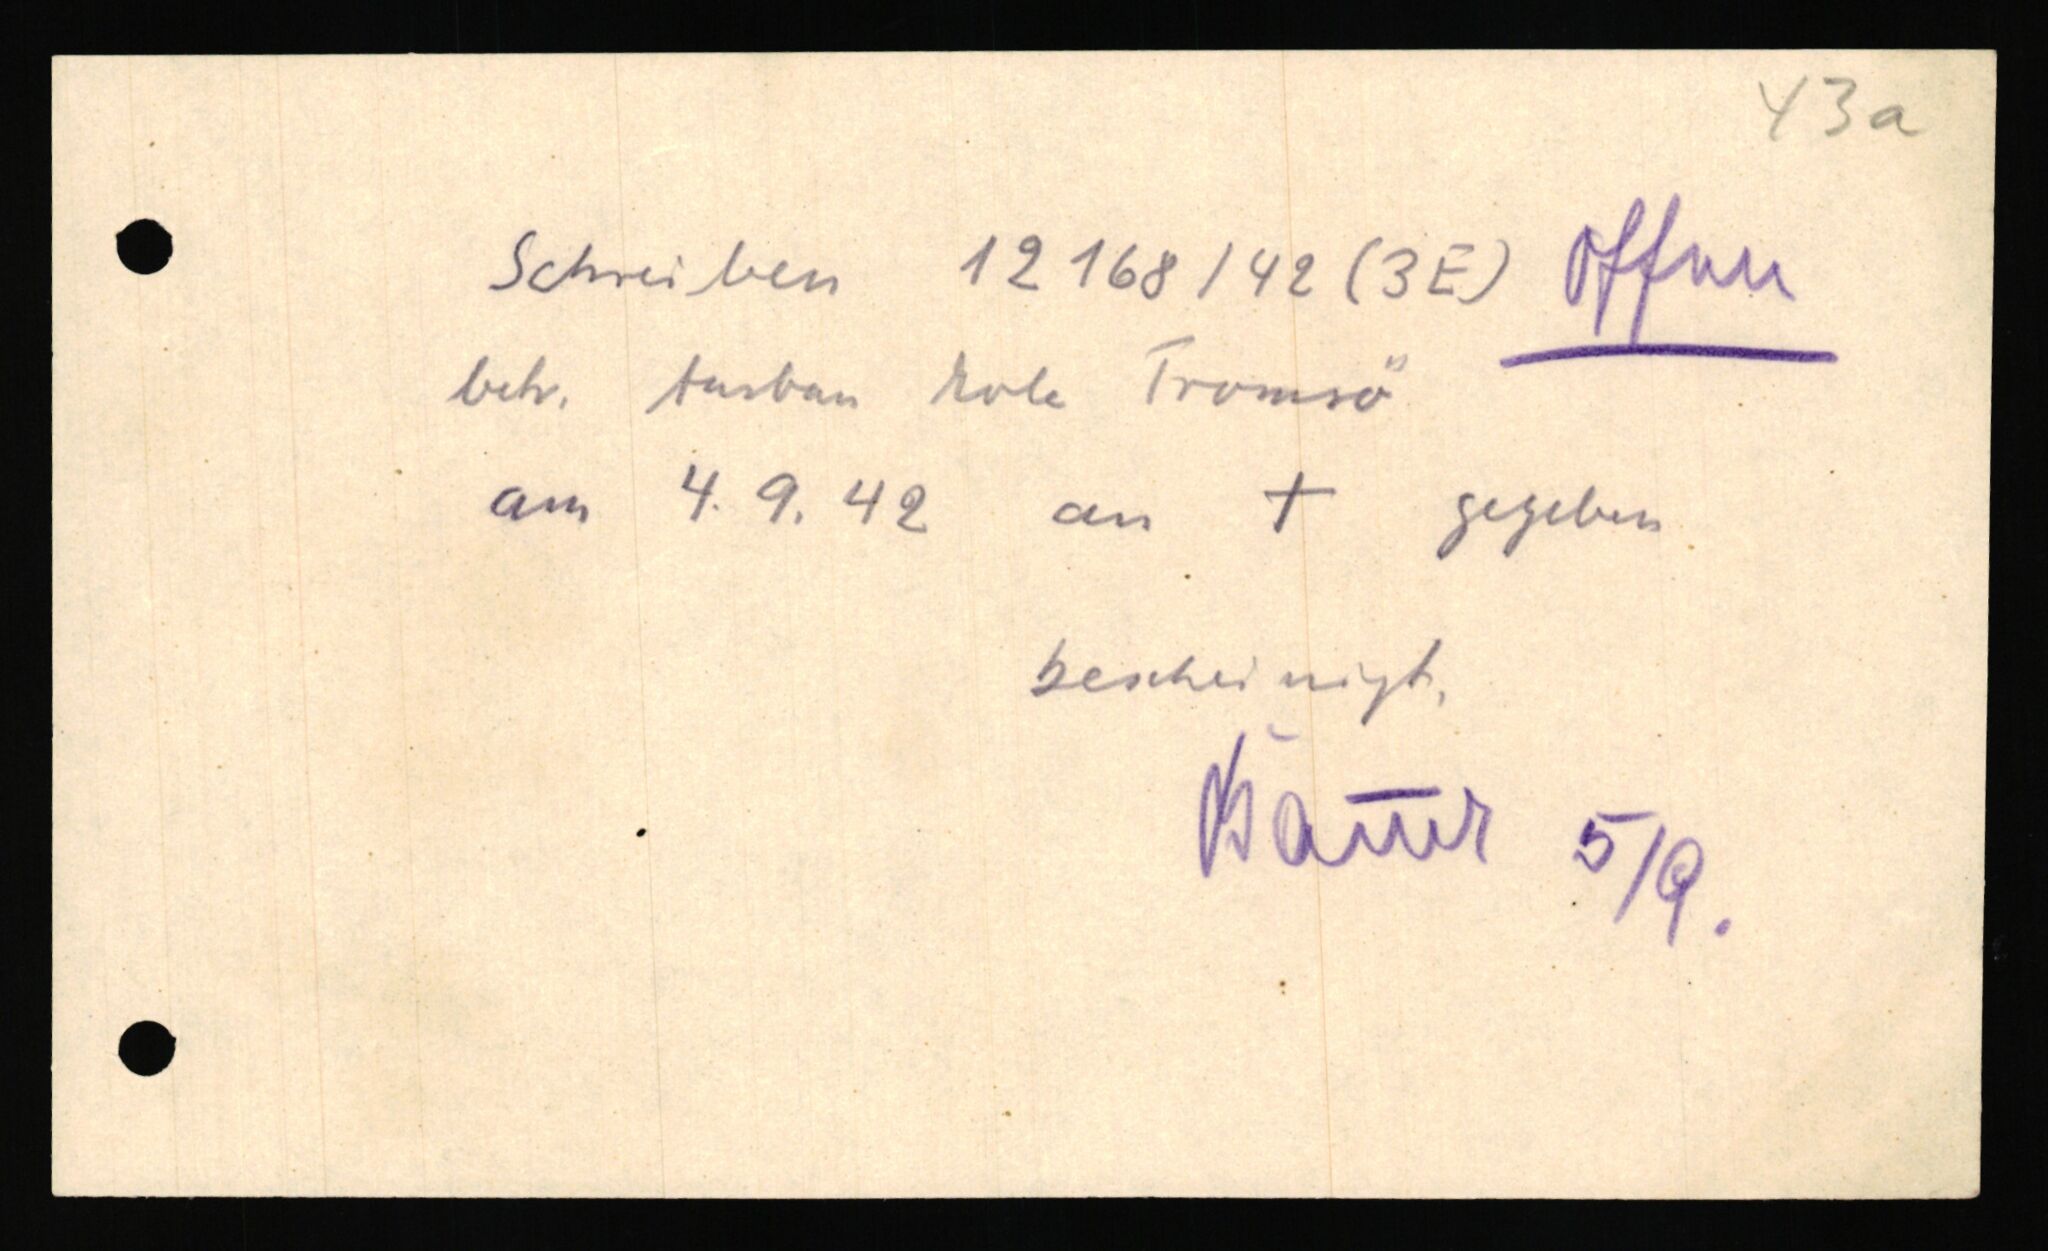 43a
Schreiben 12168/42 (3E) Offnen
betr. Ausbau Mole Tromsö
am 4.9.42 an + gegeben
bescheinigt.
5/9.